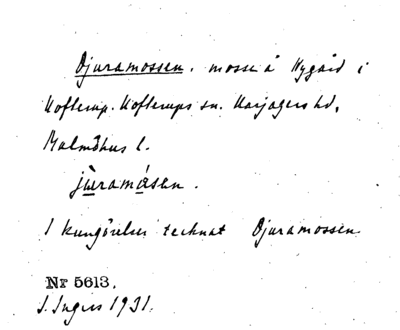 Djuramossen. mosse å Nygård i
Kofterup. Kofterups sn. Harjagers hd,
Malmöhus l.
jùramåsen.
I kungörelse tecknat Djuramossen
Nr 5613.
S. Ingers 1931.